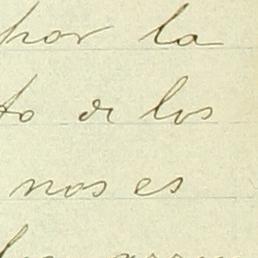 por la
to de los
nos es